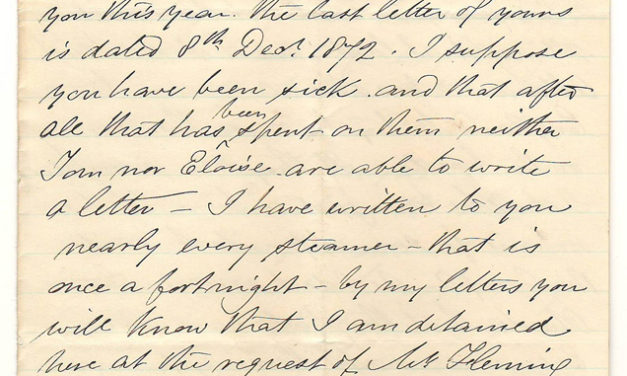 you this year. The last letter of yours
is dated 8th Decr. 1872. I suppose
you have been sick. and that after
all that has been spent on them neither
Tom nor Eloise are able to write
a letter – I have written to you
nearly every steamer – that is
once a fortnight – by my letters you
will know that I am detained
here at the request of Mr Fleming